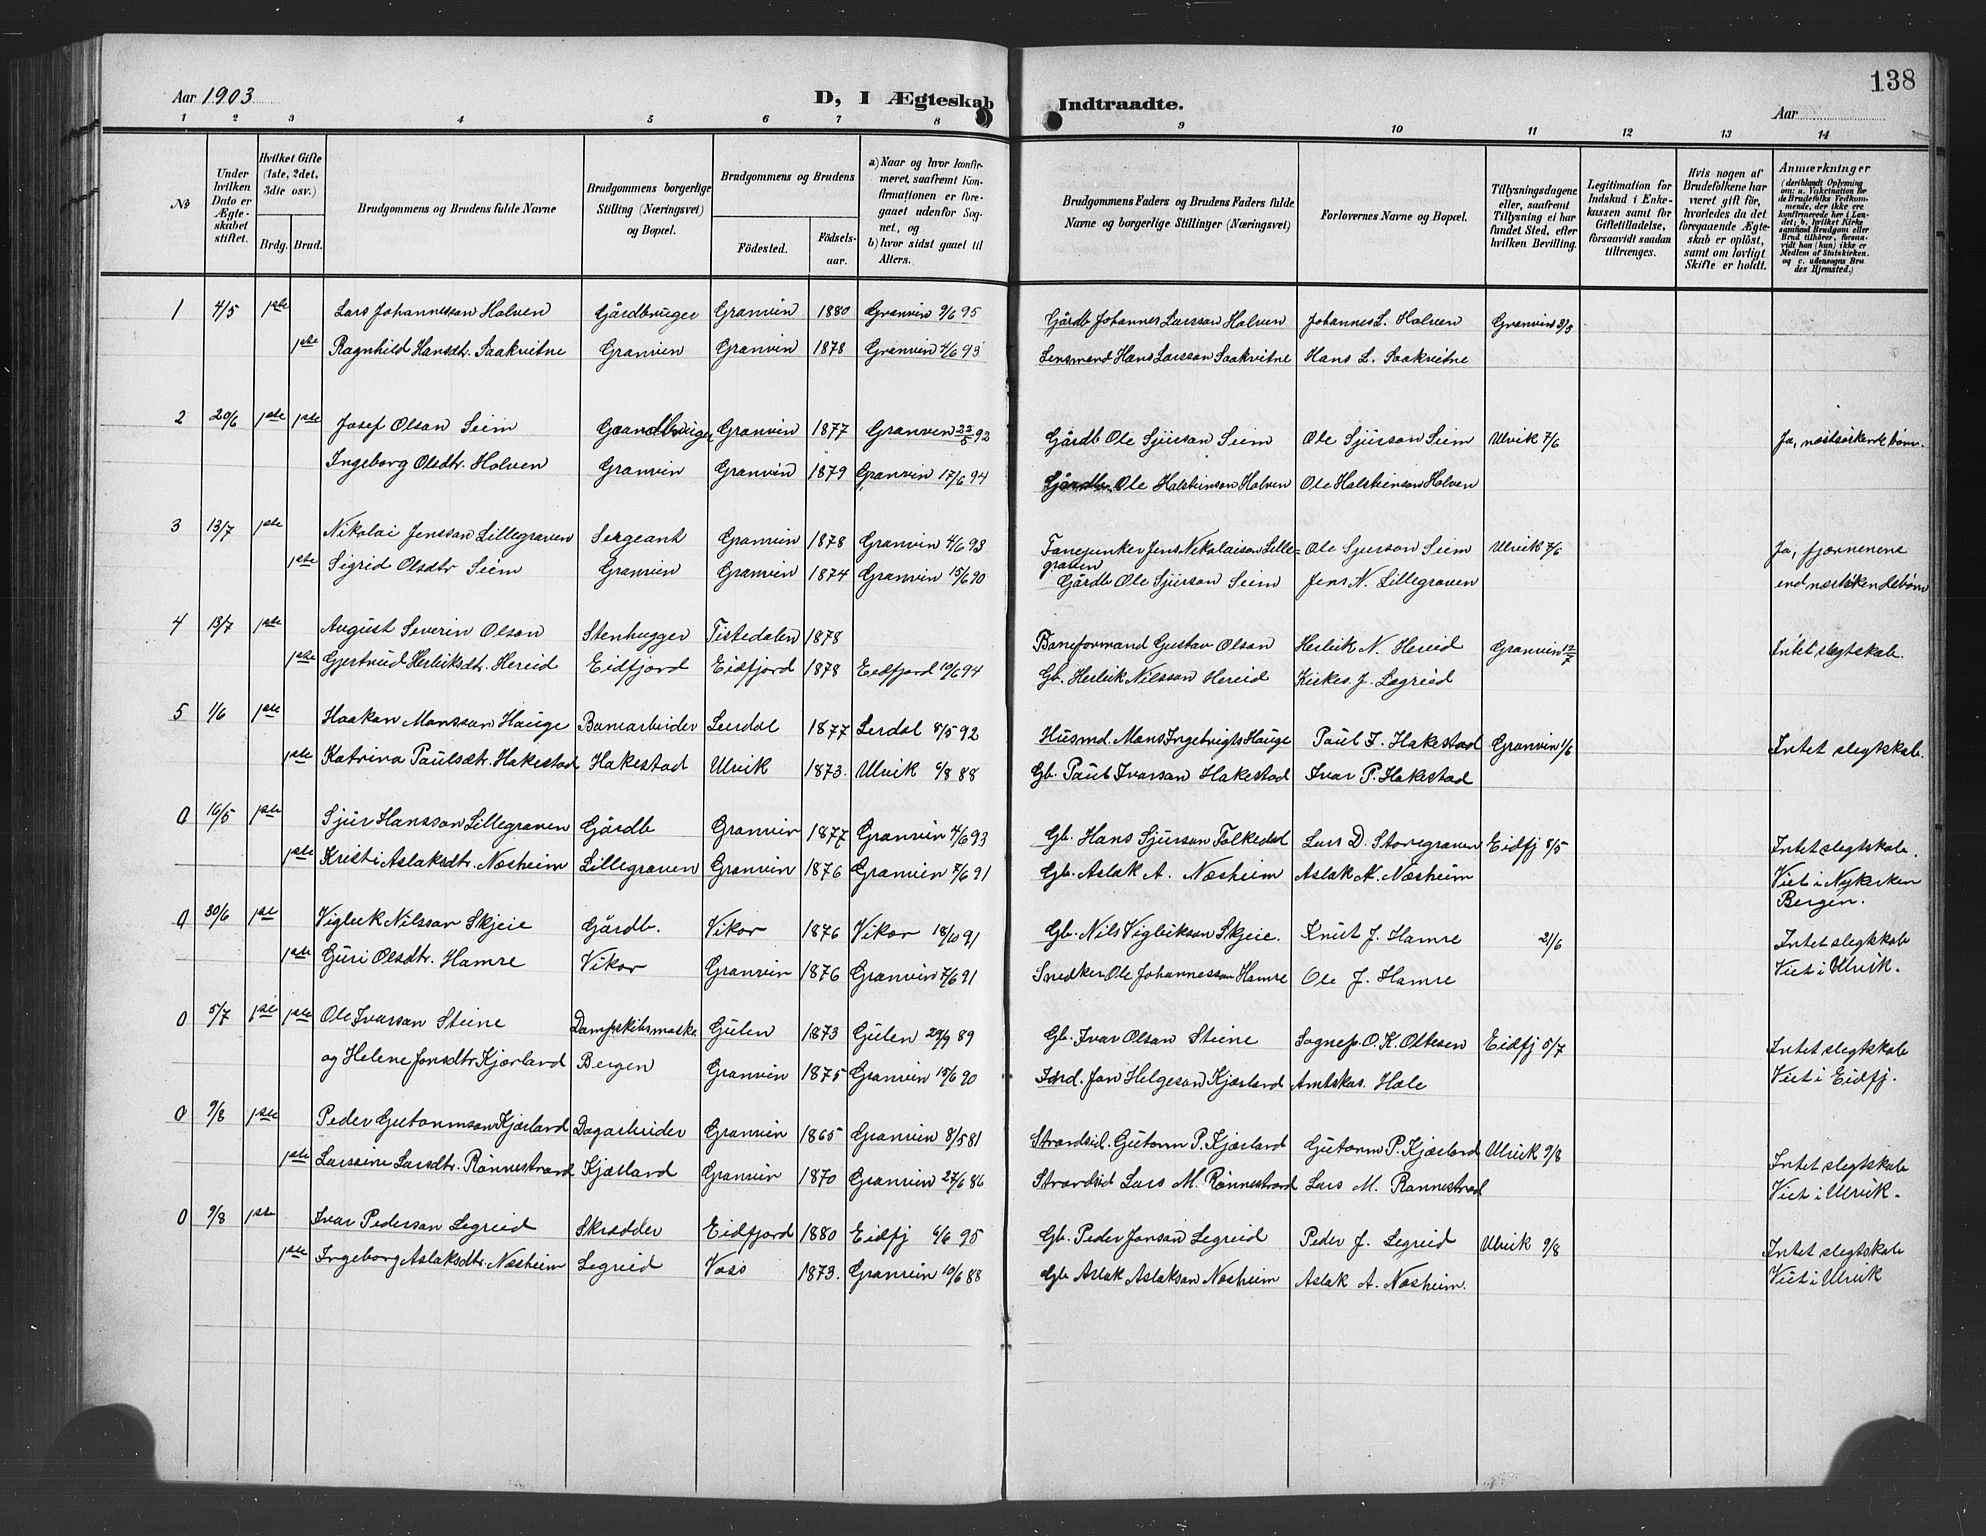 138
Aar 1903
D, I Ægteskab Indtraadte.
Aar
1 2 3 4 5 6 7 8 9 10 11 12 13 14
No
Under hvilken Dato er Ægteskabet stiftet.
Hvilket Gifte (1ste, 2det, 3die osv.)
Brdg. Brud.
Brudgommens og Brudens fulde Navne
Brudgommens borgerlige Stilling (Næringsvei) og Bopæl.
Brudgommens og Brudens
Födested. Födselsaar.
a) Naar og hvor konfirmeret, saafremt Konfirmationen er foregaaet udenfor Sognet, og
b) hvor sidst gaaet til Alters.
Brudgommens Faders og Brudens Faders fulde Navne og borgerlige Stillinger (Næringsvei)
Forlovernes Navne og Bopæl.
Tillysningsdagene eller, saafremt Tillysning ei har fundet Sted, efter hvilken Bevilling.
Legitimation for Indskud i Enkekassen samt for Giftetilladelse, forsaavidt saadan tiltrænges.
Hvis nogen af Brudefolkene har været gift för, hvorledes da det foregaaende Ægteskab er oplöst, samt om lovligt Skifte er holdt.
Anmærkninger
(deriblandt Oplysning om: a. Vakcination for de Brudefolks Vedkommende, der ikke ere konfirmerede her i Landet; b. hvilket Kirkesamfund Brudgom eller Brud tilhörer, forsaavidt han (hun) ikke er Medlem af Statskirken, og c. udensogns Brudes Hjemsted.)
1 4/5 1ste Lars Johannesson Holven Gårdbruger Granvin 1880 Granvin 9/6 95 Gårdb Johannes Larsson Holven Johannes L. Holven Granvin 3/5
1ste Ragnhild Hansdtr. Saakvitne Granvin Granvin 1878 Granvin 4/6 93 Lensmand Hans Larsson Saakvitne Hans L. Saakvitne
2 20/6 1ste 1ste Josef Olson Seim Gaardbruger Granvin 1877 Granven 22/5 92 Gårdb Ole Sjurson Seim Ole Sjurson Seim Ulvik 7/6 Ja, næstsøskendebørn.
Ingeborg Olsdtr. Holven Granvin Granvin 1879 Granvin 17/6 94 Gårdbr Ole Halsteinson Holven Ole Halsteinson Holven
3 13/7 1ste Nikolai Jensson Lillegraven Sergeant Granvin 1878 Granvin 4/6 93 Fanejunker Jens Nikolaison Lille= Ole Sjurson Seim Ulvik 7/6 Ja, fjærnenene
graven
1ste Sigrid Olsdtr Seim Granvin Granvin 1874 Granvin 15/6 90 Gårdb Ole Sjurson Seim Jens N. Lillegraven end næstskendebørn
4 13/7 1ste August Severin Olson Stenhugger Tistedalen 1878 Baneformand Gustav Olson Herleik N. Hereid Granvin 12/7 Intet slegtskab.
1ste Gjertrud Herleiksdtr. Hereid Eidfjord Eidfjord 1878 Eidfjord 10/6 94 Gb. Herleik Nilsson Hereid Kirkes. J. Lægreid
5 1/6 1ste Haakon Monsson Hauge Banearbeider Leirdal 1877 Lerdal 8/5 92 Husmd. Mons Ingebrigts Hauge Paul I. Hakestad Granvin 1/6 Intet slegtskab.
1ste Katrina Paulsdtr. Hakestad Hakestad Ulvik 1873. Ulvik 6/8 88 Gb. Paul Ivarson Hakestad Ivar P. Hakestad
0 16/5 1ste Sjur Hansson Lillegraven Gårdb Granvin 1877 Granvin 4/6 93 Gb. Hans Sjurson Folkedal Lars D. Storegraven Eidfj 8/5 Intet slegtskab.
1ste Kristi Aslaksdtr. Næsheim Lillegraven Granvin 1876 Granvin 7/6 91 Gb. Aslak A. Næsheim Aslak A. Næsheim Viet i Nykirken
Bergen.
0 30/6 1ste Vigleik Nilsson Skjeie Gårdb. Vikør 1876 Vikør 18/10 91 Gb. Nils Vigleikson Skjeie. Knut J. Hamre 21/6 Intet slegtskab
1ste Guri Olsdtr. Hamre Vikør Granvin 1876 Granvin 7/6 91 Snedker Ole Johannesson Hamre Ole J. Hamre Viet i Ulvik.
0 5/7 1ste 1ste Ole Ivarson Steine Dampskibsmaske. Gulen 1873 Gulen 29/9 89 Gb. Ivar Olson Steine Sognep. O. K. Ottesen Eidfj 5/7 Intet slegtskab
og Helene Jonsdtr Kjærland Bergen Granvin 1875 Granvin 15/6 90 Jon Helgeson Kjærland Amtskas. Hole Viet i Eidfj.
0 9/8 1ste Peder Gutormson Kjærland Dagarbeider Granvin 1865 Granvin 8/5 81 Strandsid. Gutorm P. Kjærland Gutorm P. Kjærland Ulvik 9/8 Intet slegtskab
1ste Larssine Larsdtr. Rønnestrand Kjærland Granvin 1870 Granvin 27/6 86 Strandsid Lars M. Rønnestrand Lars M. Rønnestrand Viet i Ulvik.
0 9/8 1ste Ivar Pederson Legreid Skrædder Eidfjord 1880 Eidfj 6/6 95 Gb. Peder Jonson Legreid Peder J. Legreid Ulvik 9/8 Intet slegtskab
1ste Ingeborg Aslaksdtr. Næsheim Legreid Voss 1873. Granvin 10/6 88 Gb Aslak Aslakson Næsheim Aslak A. Næsheim. Viet i Ulvik